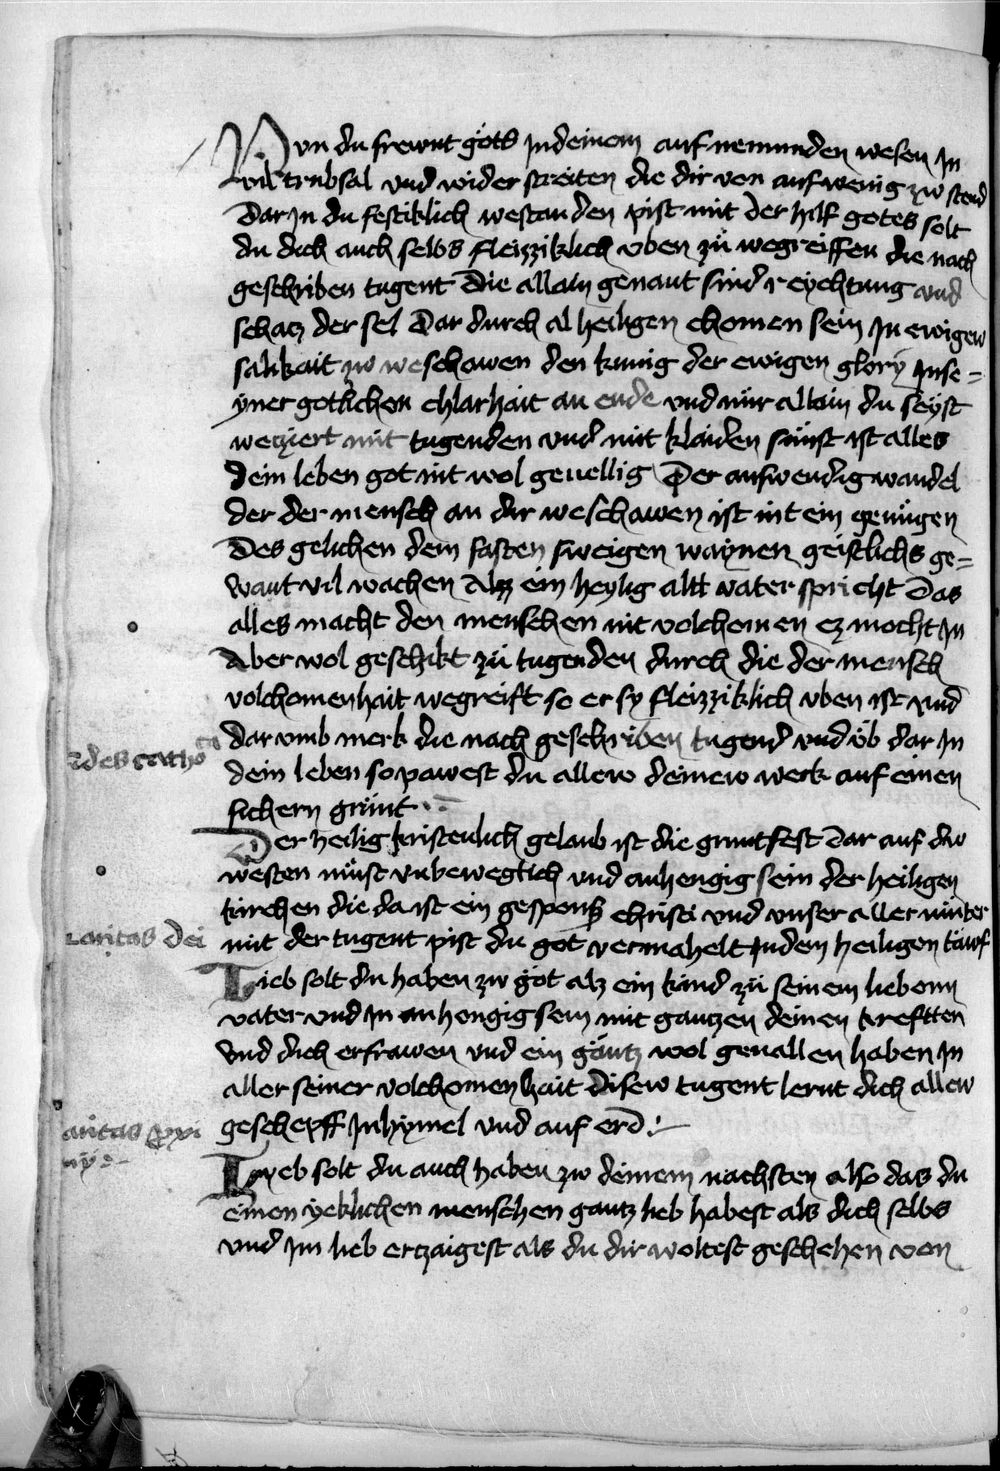 Nvn du frewnt gots In deinem auf nemunden wesen In
vil trubsal vnd wider streiten die dir von auswenig zw stend
Dar In du festiklich westanden pist mit der hilf gotes solt
du dich auch selbs fleizziklich vben zü wegreiffen die nach
geschriben tugent Die allain genant sind reychtung vnd
schatz der sel Dar durch al heiligen chomen sein In ewigew
salikait zw weschawen den kunig der ewigen glory Inse=
yner gotlichen chlarhait an ende vnd nür allain du seyst
wetziert mit tugenden vnd mit klaiden sünst ist alles
dein leben got nit wol geuellig Der auswendig wandel
der der mensch an dir weschawen ist nit ein genügen
Des gelichen dem fasten sweigen waynen geistlichs ge=
want vil wachen Alz ein heylig altt vater spricht Das
alles macht den menschen nit volchomen ez mocht In
Aber wol geschikt zü tugenden durch die der mensch
volchomenhait wegreift so er sy fleizziklich vben ist vnd
dar vmb merk die nach geschriben tugend vnd üb dar In
dein leben so pawest du allew deinew werk auf einen
sichern grünt
Der heilig kristenlich gelaub ist die gruntfest dar auf du
westen müst vnbeweglich vnd anhengig sein der heiligen
kirchen die da ist ein gespons christi vnd vnser aller muter
mit der tugent pist du got vermahelt In dem heiligen tawf
Lieb solt du haben zw got alz ein kind zü seinem liebenn
vater vnd Im anhengig sein mit gantzen deinen krefften
Vnd dich erfrawen vnd ein gantz wol geuallen haben In
aller seiner volchomenhait Disew tugent lernt dich allew
gescheppff In hymel vnd auf erd
Lyeb solt du auch haben zw deinem nachsten also das du
einen yeklichen menschen gantz lieb habest als dich selbs
vnd Im lieb ertzaigest als du dir woltest geschehen von
fides catho ca
Caritas dei
caritas proxi